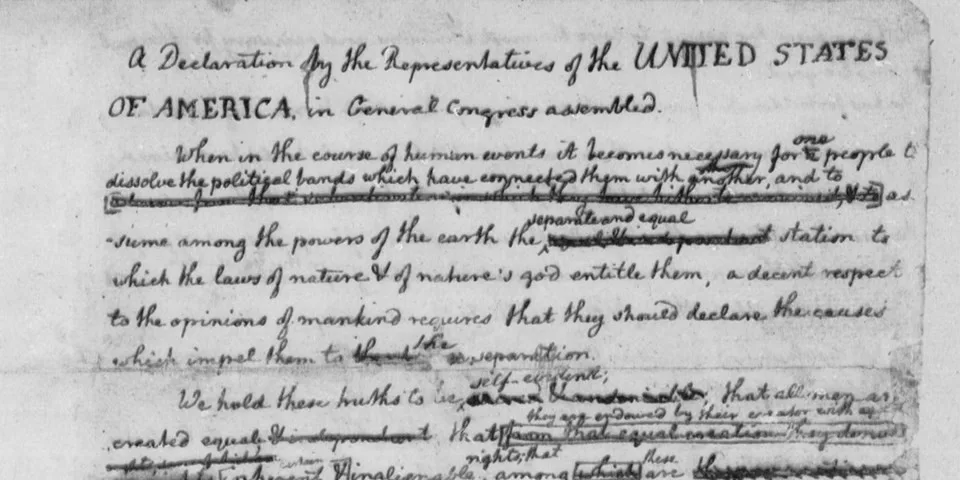 A Declaration by the Representatives of the UNITED STATES
OF AMERICA, in General Congress assembled.
When in the course of human events it becomes necessary for one people to
dissolve the political bands which have connected them with another, and to
as
separate and equal
-sume among the powers of the earth the station to
which the laws of nature & of nature's god entitle them, a decent respect
to the opinions of mankind requires that they should declare the causes
the
which impel them to separation.
self-evident;
We hold these truths to be that all men are
they are endowed by their creator with
created equal & independent that from that equal creation they
rights; that these
inherent & inalienable among which are